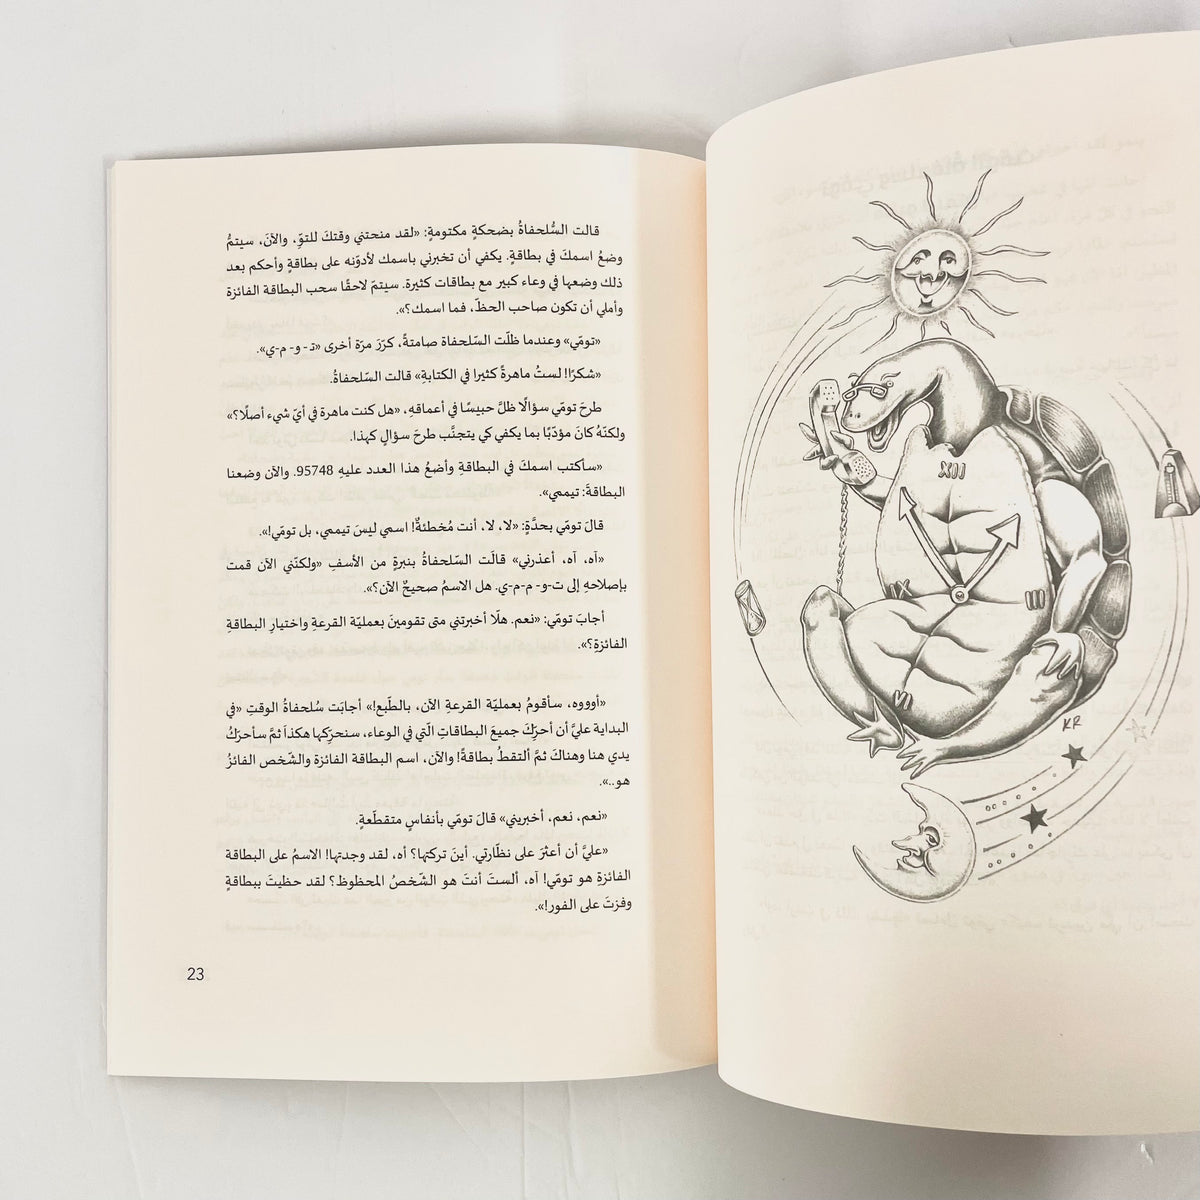 XII
IX
III
VI
KR
قالت السُّلحفاةُ بضحكةٍ مكتومةٍ: «لقد منحتني وقتكَ للتوِّ، والآنَ، سيتمُّ
وضعُ اسمكَ في بطاقةٍ. يكفي أن تخبرني باسمك لأدوّنه على بطاقةٍ وأحكم بعد
ذلك وضعها في وعاء كبير مع بطاقات كثيرة. سيتمّ لاحقًا سحب البطاقة الفائزة
وأملي أن تكون صاحب الحظّ، فما اسمك؟».
«تومّي» وعندما ظلّت السّلحفاة صامتةً، كرّرَ مرّة أخرى «تـ - و- م-ي».
«شكرًا! لستُ ماهرةً كثيرا في الكتابةِ» قالت السّلحفاةُ.
طرحَ تومّي سؤالًا ظلَّ حبيسًا في أعماقهِ، «هل كنت ماهرة في أيّ شيء أصلًا؟»
ولكنّهُ كانَ مؤدّبًا بما يكفي كي يتجنَّب طرحَ سؤالِ كهذا.
«سأكتب اسمكَ في البطاقةِ وأضعُ هذا العدد عليهِ 95748. والآن وضعنا
البطاقةَ: تيممي».
قالَ تومّي بحدَّةٍ: «لا، لا، أنت مُخطئةٌ! اسمي ليسَ تيممي، بل تومّي!».
«آه، آه، أعذرني» قالَت السّلحفاةُ بنبرةٍ من الأسفِ «ولكنّني الآن قمت
بإصلاحهِ إلى ت-و- م-م-ي. هل الاسمُ صحيحٌ الآن؟».
أجابَ تومّي: «نعم. هلّا أخبرتني متى تقومينَ بعمليّة القرعةِ واختيارِ البطاقةِ
الفائزةِ؟».
«أوووه، سأقومُ بعمليّة القرعةِ الآن، بالطّبع!» أجابَت سُلحفاةُ الوقتِ «في
البداية عليَّ أن أحرِّكَ جميعَ البطاقاتِ الّتي في الوعاء، سنحرّكها هكذاَ ثمَّ سأحرّكُ
يدي هنا وهناكَ ثمَّ ألتقطُ بطاقةً! والآن، اسم البطاقة الفائزة والشّخص الفائزُ
هو..».
«نعم، نعم، أخبريني» قالَ تومّي بأنفاسٍ متقطّعةٍ.
«عليَّ أن أعثرَ على نظّارتي. أينَ تركتها؟ آه، لقد وجدتها! الاسمُ على البطاقة
الفائزةِ هو تومّي! آه، ألستَ أنتَ هو الشّخصُ المحظوظ؟ لقد حظيتَ ببطاقةٍ
وفزتَ على الفور!».
23